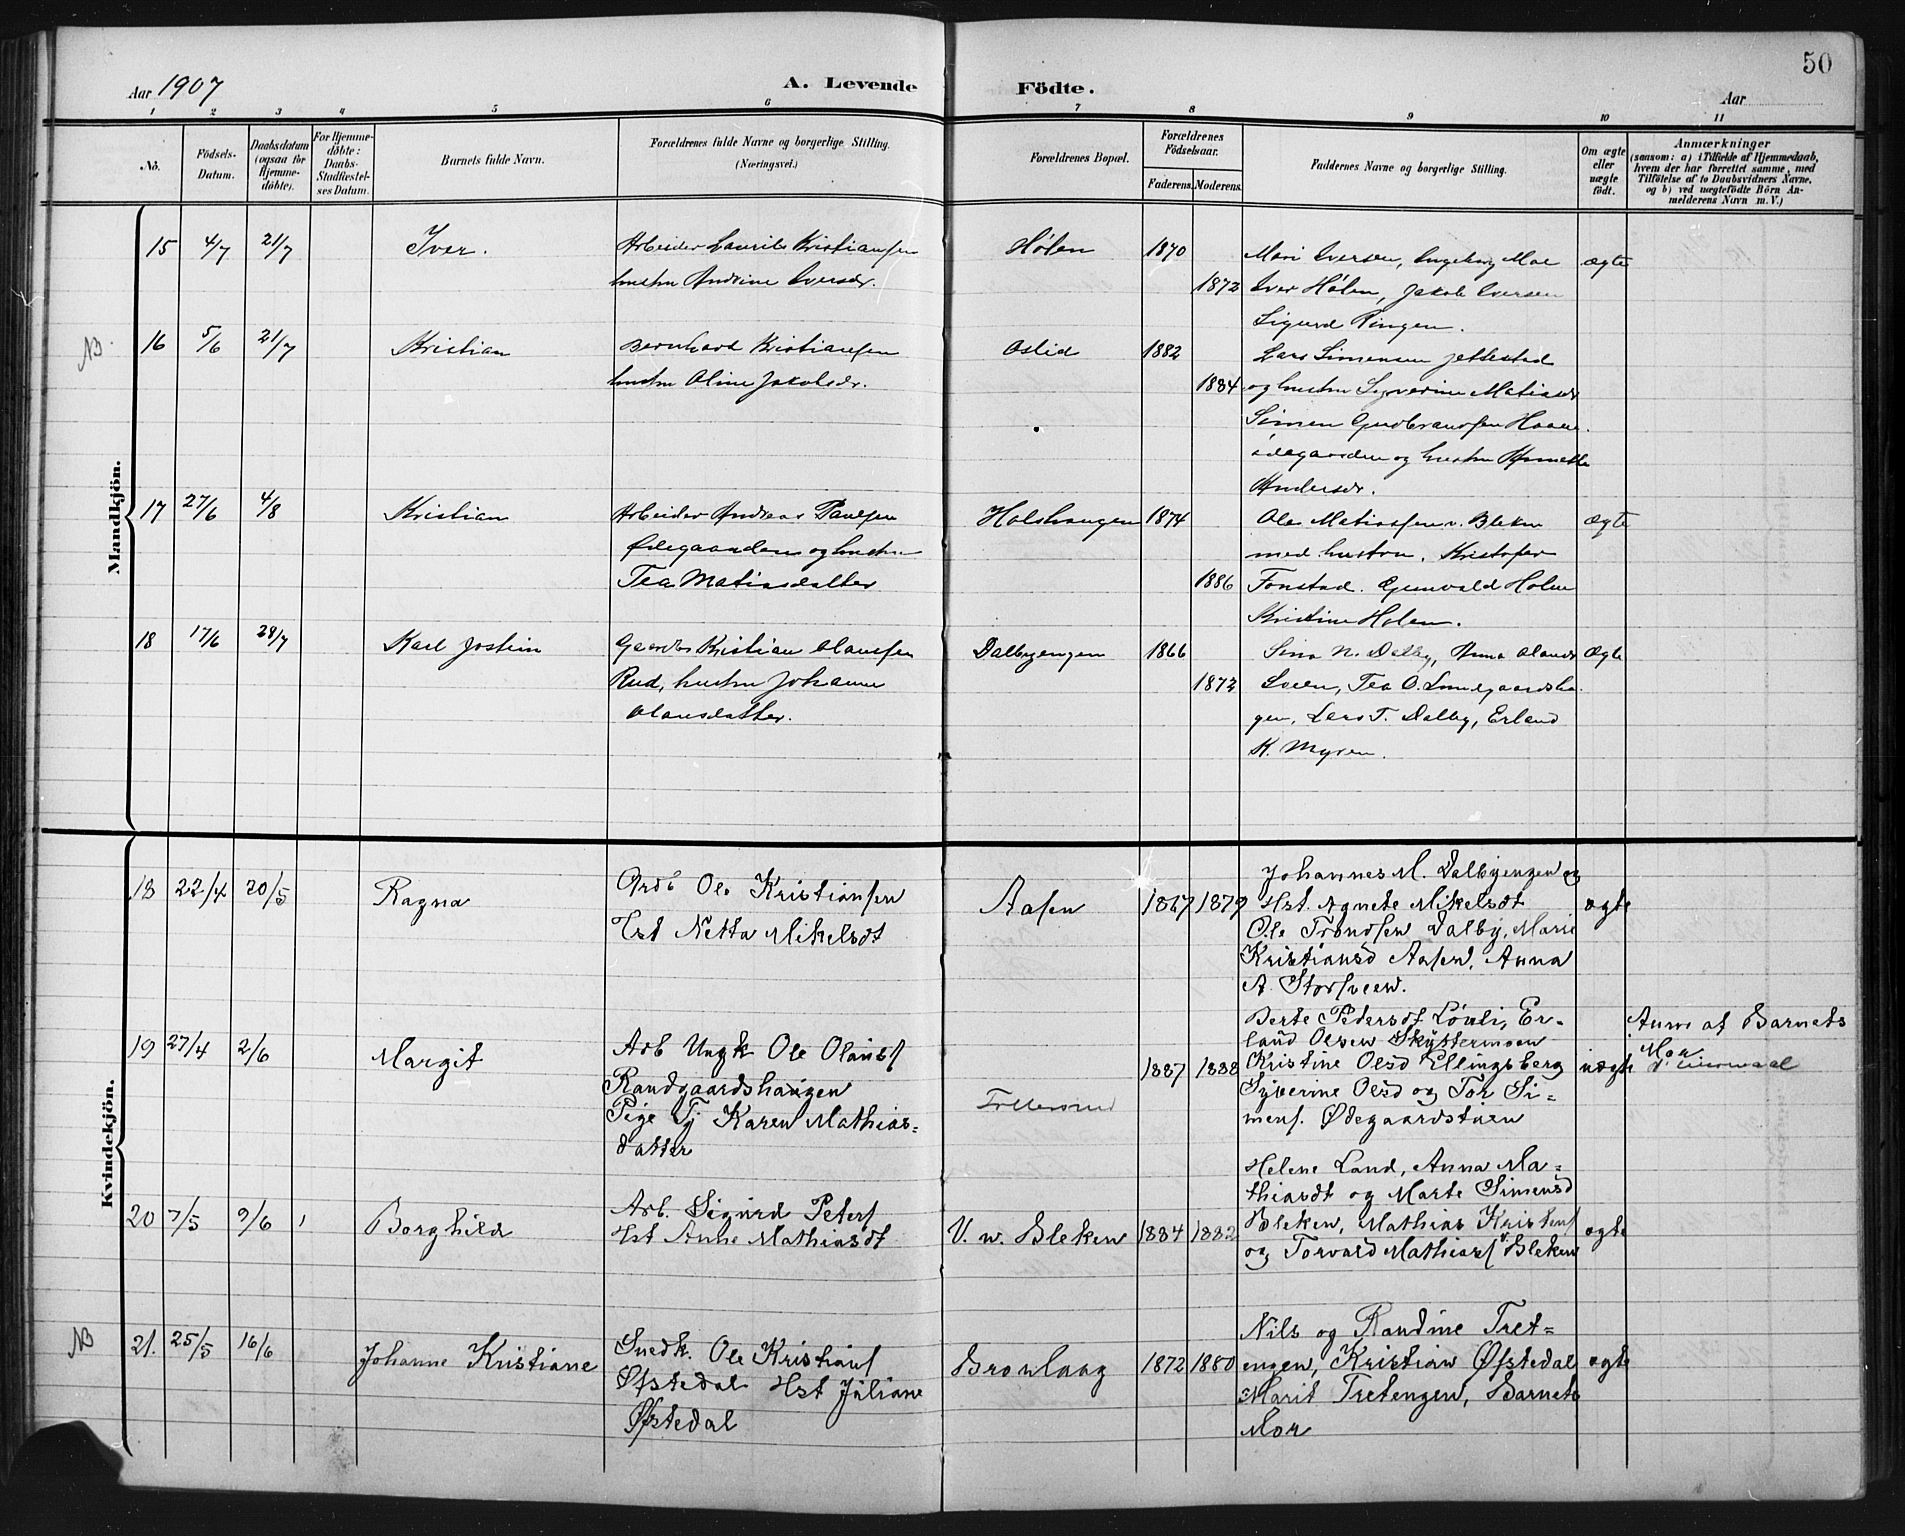 50
Aar 1907
A. Levende Födte.
Aar
1 2 3 4 5 6 7 8 9 10 11
No.
Födsels-Datum.
Daabsdatum (ogsaa for Hjemme-døbte).
For Hjemme-døbte: Daabs-Stadfæstel-ses Datum.
Barnets fulde Navn.
Forældrenes fulde Navne og borgerlige Stilling.
(Næringsvei.)
Forældrenes Bopæl.
Forældrenes Födselsaar.
Faderens. Moderens.
Faddernes Navne og borgerlige Stilling.
Om ægte eller uægte födt.
Anmærkninger
(saasom: a) i Tilfælde af Hjemmedaab,
hvem der har forrettet samme, med
Tilföielse af to Daabsvidners Navne,
og b) ved uægtefödte Börn An-
melderens Navn m. V.)
Mandkjön.
15 4/7 21/7 Iver.
Arbeider Laurits Kristiansen
hustru Andrine Iversdr.
Hølen 1870 1872
Mari Iversen, Ingeborg Moe
Iver Hølen, Jakob Iversen
Sigurd Ringen.
ægte
NB. 16 5/6 21/7 Kristian
Bernhard Kristiansen
hustru Oline Jakobsdr.
Oslid 1882 1884
Lars Simensen
og hustru Syverine Matiasdr
Simen Gudbrandsen
ødegaarden og hustru
Andersdr.
17 27/6 4/8 Kristian
Arbeider Andreas Paulsen
Ødegaarden og hustru
Tea Matiasdatter
Holshaugen 1874 1886
Ole Matiassen v. Bleken
med hustru. Kristofer
Fonstad. Gunvald Holen
Kristine Holen.
ægte
18 17/6 28/7 Karl Jostein
Gaardbr Kristian Olausen
Rud, hustru Johanne
Olausdatter.
Dalbyengen 1866 1872
Sina N. Dalby, Anna Olausdr
Loen, Tea O. Lundgaardsha-
gen, Lars T. Dalby, Erland
K. Myren.
Ægte
Kvindekjön.
18 22/4 20/5 Ragna
Ardb Ole Kristiansen
Hst Netta Mikelsdt
Aasen 1867 1879
Johannes M. Dalbyengen og
Hst. Agnete Mikelsdt
Ole Trondsen Dalby, Marie
Kristiansd Aasen, Anna
A. Storsveen.
ægte
19 27/4 2/6 Margit
Arb Ungk Ole Olausf
Randgaardshaugen
Pige Tj Karen Mathias=
datter
1887 1888
Berte Pedersdt Løvli, Er-
land Olsen Skyttermoen
Kristine Olsd Ellingsberg
Syverine Olsd og Tor Si=
mens. Ødegaardstuen
uægte
Anm af Barnets
Mor
20 7/5 9/6 Borghild
Arb. Sigurd Petersf
Hst Anne Mathiasdt
V. n. Bleken 1884 1882
Helene Land, Anna Ma=
thiasdt og Marte Simensd
Bleken, Mathias Kristens
og Torvald Mathiasf v. Bleken
ægte
NB 21. 25/5 16/6 Johanne Kristiane
Snedk. Ole Kristians
Øfstedal Hst Juliane
Øfstedal
Bronlaag 1872 1880
Nils og Randine Tret=
engen, Kristian Øfstedal
Marit Tretengen, Barnets
Mor
ægte